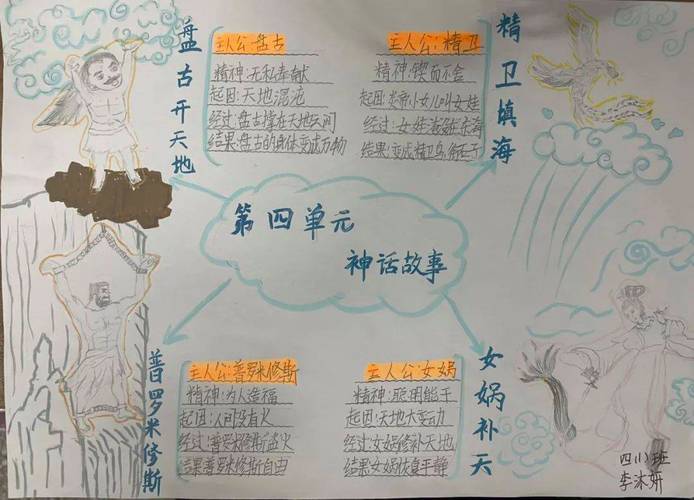 盘古开天地
主人公:盘古
精神:无私奉献
起因:天地混沌
经过:盘古撑在天地之间
结果:盘古的身体变成万物
主人公:精卫
精神:锲而不舍
起因:炎帝小女儿叫女娃
经过:女娃溺死东海
结果:变成精卫鸟,衔石子
精卫填海
第四单元
神话故事
普罗米修斯
主人公:普罗米修斯
精神:为人造福
起因:人间没有火
经过:普罗米修斯盗火
结果:普罗米修斯自由
主人公:女娲
精神:聪明能干
起因:天地大变动
经过:女娲修补天地
结果:女娲恢复平静
女娲补天
四(1)班
李沐妍